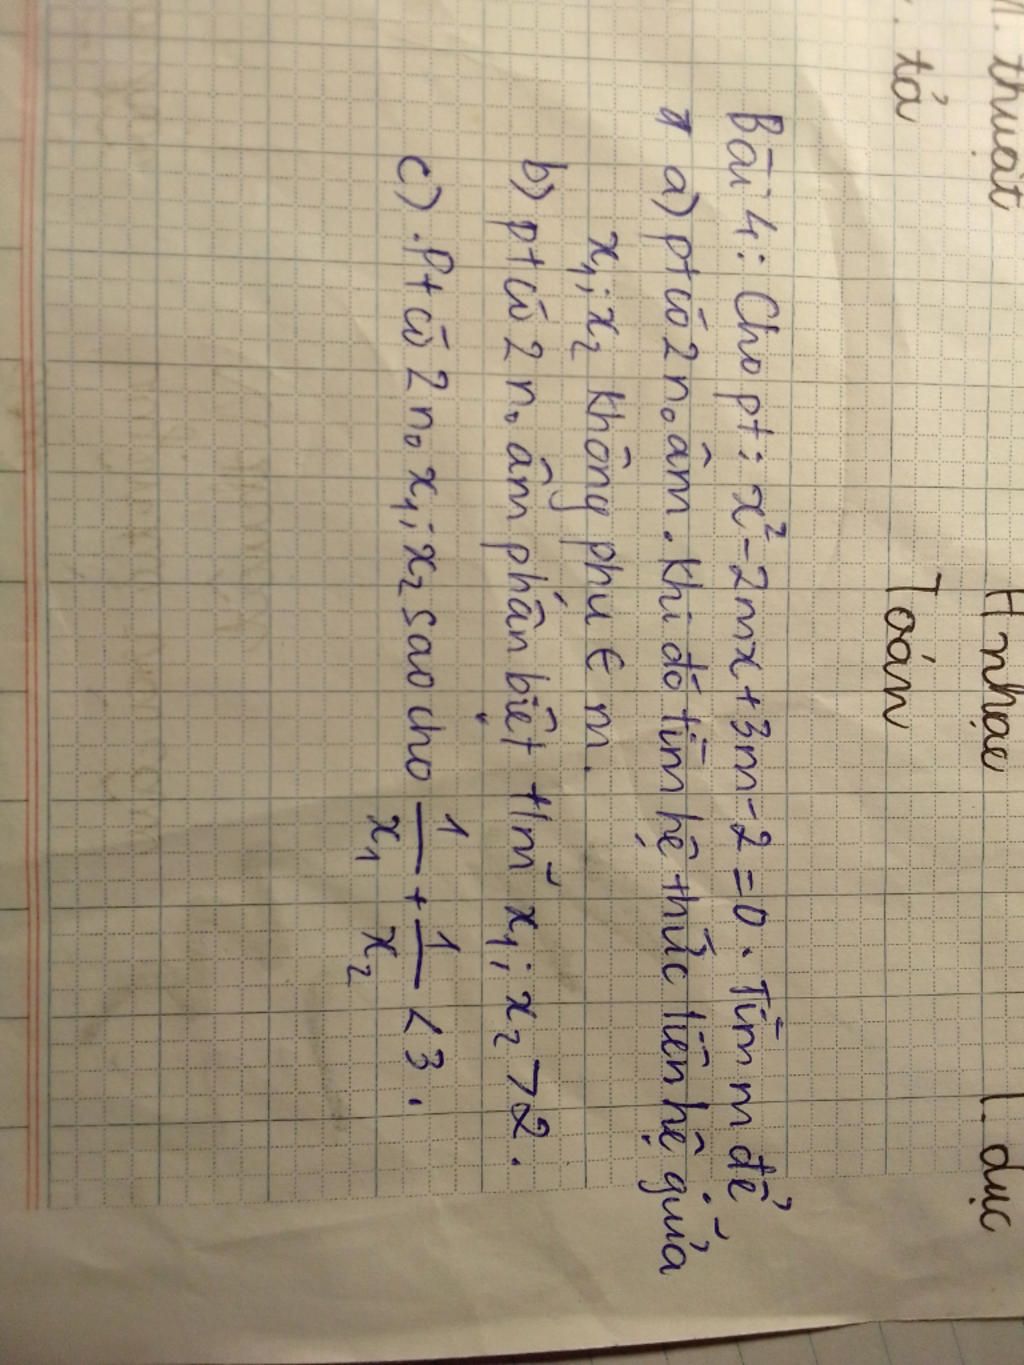 thuật H nhạc T. dục
tả Toán
Bài 4: Cho pt: x² - 2mx + 3m - 2 = 0. Tìm m để
a) pt có 2 n₀ âm. Khi đó tìm hệ thức liên hệ giữa
x₁; x₂ không phụ ∈ m.
b) pt có 2 n₀ âm phân biệt t/m x₁; x₂ > 2.
c) Pt có 2 n₀ x₁; x₂ sao cho 1/x₁ + 1/x₂ < 3.